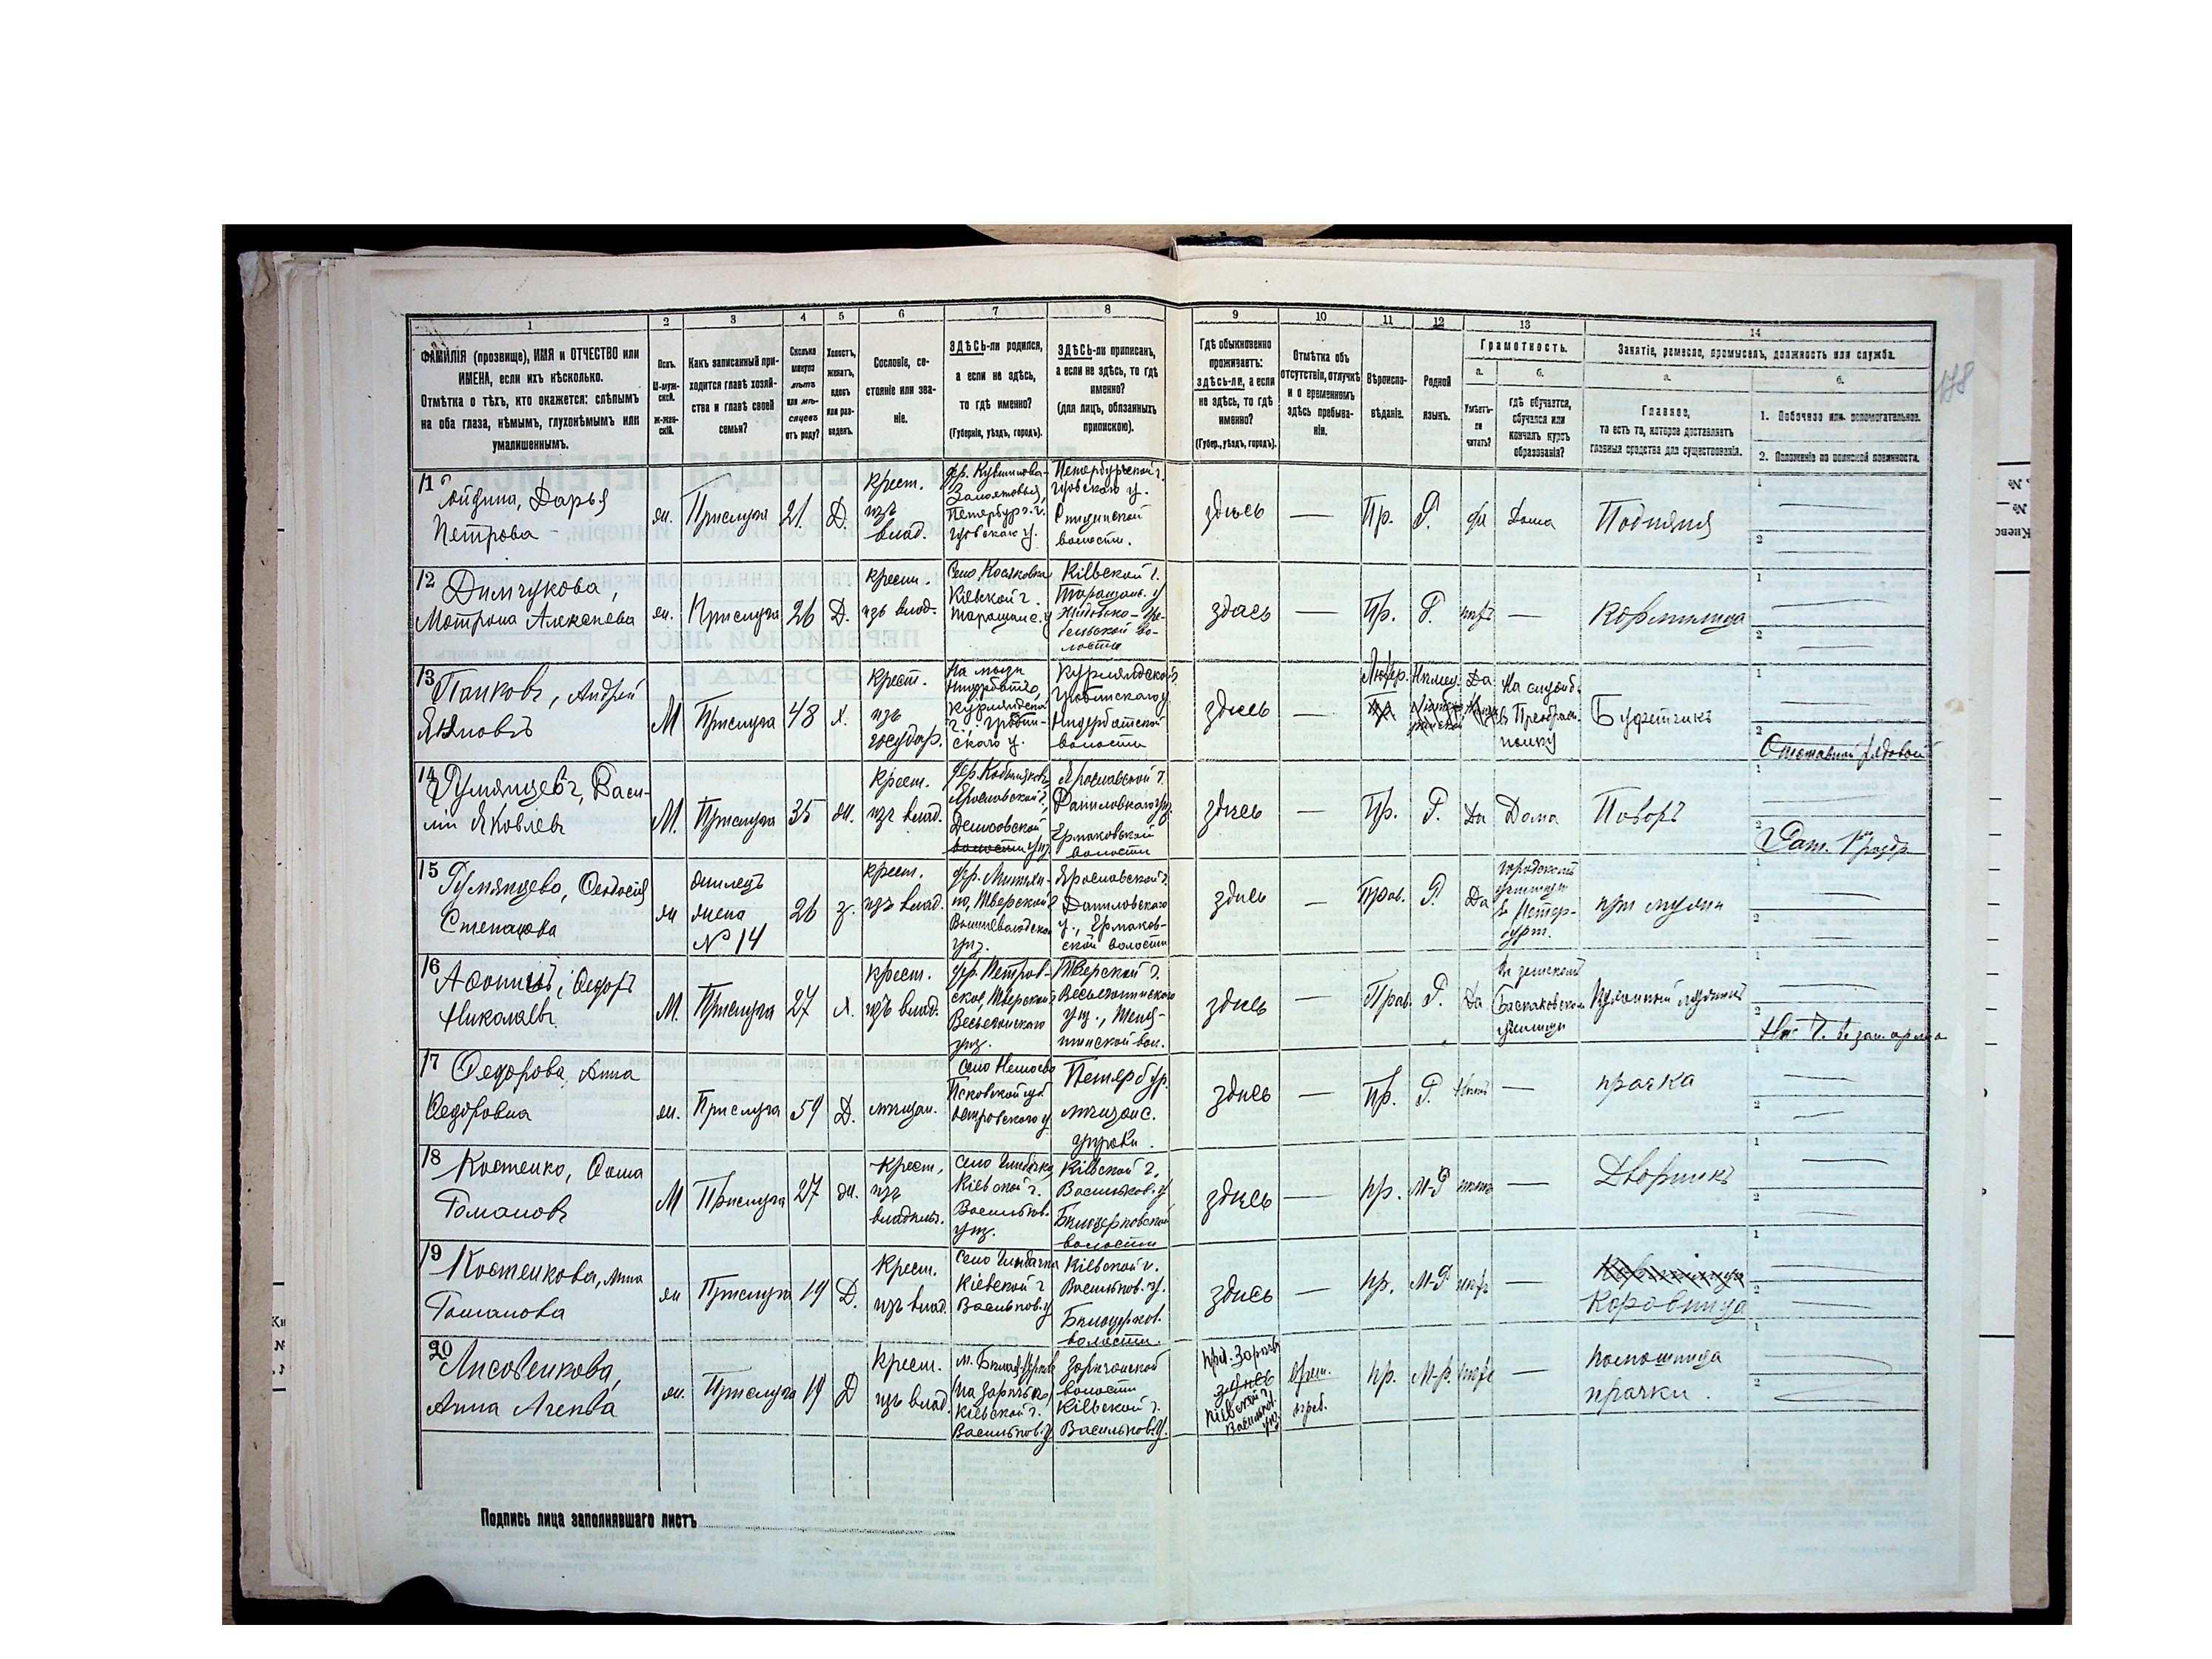 1 2 3 4 5 6 7 8 9 10 11 12 13 14
ФАМИЛІЯ (прозвище), ИМЯ и ОТЧЕСТВО или
ИМЕНА, если ихъ нѣсколько.
Отмѣтка о тѣхъ, кто окажется: слѣпымъ
на оба глаза, нѣмымъ, глухонѣмымъ или
умалишеннымъ.
Полъ.
М-муж-
ской.
ж-жен-
скій.
Какъ записанный при-
ходится главѣ хозяй-
ства и главѣ своей
семьи?
Сколько
минуло
лѣтъ
или мѣ-
сяцевъ
отъ роду?
Холостъ,
женатъ,
вдовъ
или раз-
веденъ.
Сословіе, со-
стояніе или зва-
ніе.
ЗДѢСЬ-ли родился,
а если не здѣсь,
то гдѣ именно?
(Губернія, уѣздъ, городъ).
ЗДѢСЬ-ли приписанъ,
а если не здѣсь, то гдѣ
именно?
(для лицъ, обязанныхъ
припискою).
Гдѣ обыкновенно
проживаетъ:
здѣсь-ли, а если
не здѣсь, то гдѣ
именно?
(Губер., уѣздъ, городъ).
Отмѣтка объ
отсутствіи, отлучкѣ
и о временномъ
здѣсь пребыва-
ніи.
Вѣроиспо-
вѣданіе.
Родной
языкъ.
Грамотность.
а. б.
Умѣетъ-
ли
читать?
гдѣ обучается,
обучался или
кончилъ курсъ
образованія?
Занятіе, ремесло, промыселъ, должность или служба.
а. б.
Главное,
то есть то, которое доставляетъ
главныя средства для существованія.
1. Побочное или вспомогательное.
2. Положеніе по воинской повинности.
178
11
Дарья
Петрова
ж.
Прислуга
21.
Д.
крест.
изъ
влад.
Петербург. г.
Гдовскаго у.
Петербургской г.
Гдовскаго у.
волости.
здѣсь
—
Пр.
Р.
да
Дома
Подняня
1
2
12 Димчукова,
Мотрона Алексѣева
ж.
Прислуга
26
Д.
крест.
изъ влад.
Село Косяковка
Кіевской г.
Таращанс. у
Кіевской г.
Таращанс. у
Жидовско-Гре-
бельской во-
лости
здѣсь
—
Пр.
Р.
нѣтъ
—
Кормилица
1
2
13
Андрей
Яновъ
М
Прислуга
48
х.
крест.
изъ
государ.
Курляндской
г., Гробин-
скаго у.
Курляндской г.
Гробинскаго у
Нидербатской
волости
здѣсь
—
Лютер.
Нѣмец.
Да
На служб.
въ Преображ.
полку
Буфетчикъ
1
2
Отставной рядовой
14 Румянцевъ, Васи-
лій Яковлевъ
М.
Прислуга
35
ж.
крест.
изъ влад.
Ярославской г.,
Ярославской г.
Даниловскаго уѣз.
Ермаковской
волости
здѣсь
—
Пр.
Р.
Да
Дома
Поваръ
1
2
Рат. 1го разр.
15 Румянцева, Ѳеодосія
Степанова
ж
жилецъ
жена
№ 14
26
з.
крест.
изъ влад.
Тверской г
Вышневолоцкаго
уѣз.
Ярославской г.
Даниловскаго
у., Ермаков-
ской волости
здѣсь
—
Прав.
Р.
Да
городскомъ
училищѣ
въ Петер-
бургѣ.
при мужѣ
1
2
16 Аѳонинъ, Ѳедоръ
Николаевъ
М.
Прислуга
27
х.
крест.
изъ влад.
дер. Петров-
ское, Тверской г
Весьегонскаго
уѣз.
Тверской г.
Весьегонскаго
уѣз.,
здѣсь
—
Прав.
Р.
Да
въ земскомъ
училищѣ
1
2
17 Ѳедорова, Анна
Ѳедоровна
ж.
Прислуга
59
Д.
мѣщан.
Псковской губ.
Островского у
Петербур.
мѣщанс.
управы.
здѣсь
—
Пр.
Р.
—
прачка
1
2
18 Костенко, Ѳома
Романовъ
М
Прислуга
27
ж.
крест.
изъ
владѣльч.
Кіевской г.
Васильков.
уѣз.
Кіевской г.,
Васильков. у
Бѣлоцерковской
волости
здѣсь
—
пр.
М-Р
нѣтъ
—
Дворникъ
1
2
19 Костенкова, Анна
Романова
ж
Прислуга
19
Д.
крест.
изъ влад.
Кіевской г
Васильков. у
Кіевской г.
Васильков. у.
Бѣлоцерков.
волости.
здѣсь
—
пр.
М-Р
нѣтъ
—
Коровница
1
2
20 Лисовенкова,
Анна Агеева
ж.
Прислуга
19
Д
крест.
изъ влад.
м. Бѣлая-Церковь
(на Зарѣчьѣ)
Кіевской г.
Васильков. у
Зарѣчанской
волости
Кіевской г.
Васильков. у.
здѣсь
Кіевской г.
Васильков.
уѣз.
Врем.
преб.
пр.
М-Р.
нѣтъ
—
помощница
прачки.
1
2
Подпись лица заполнявшаго листъ